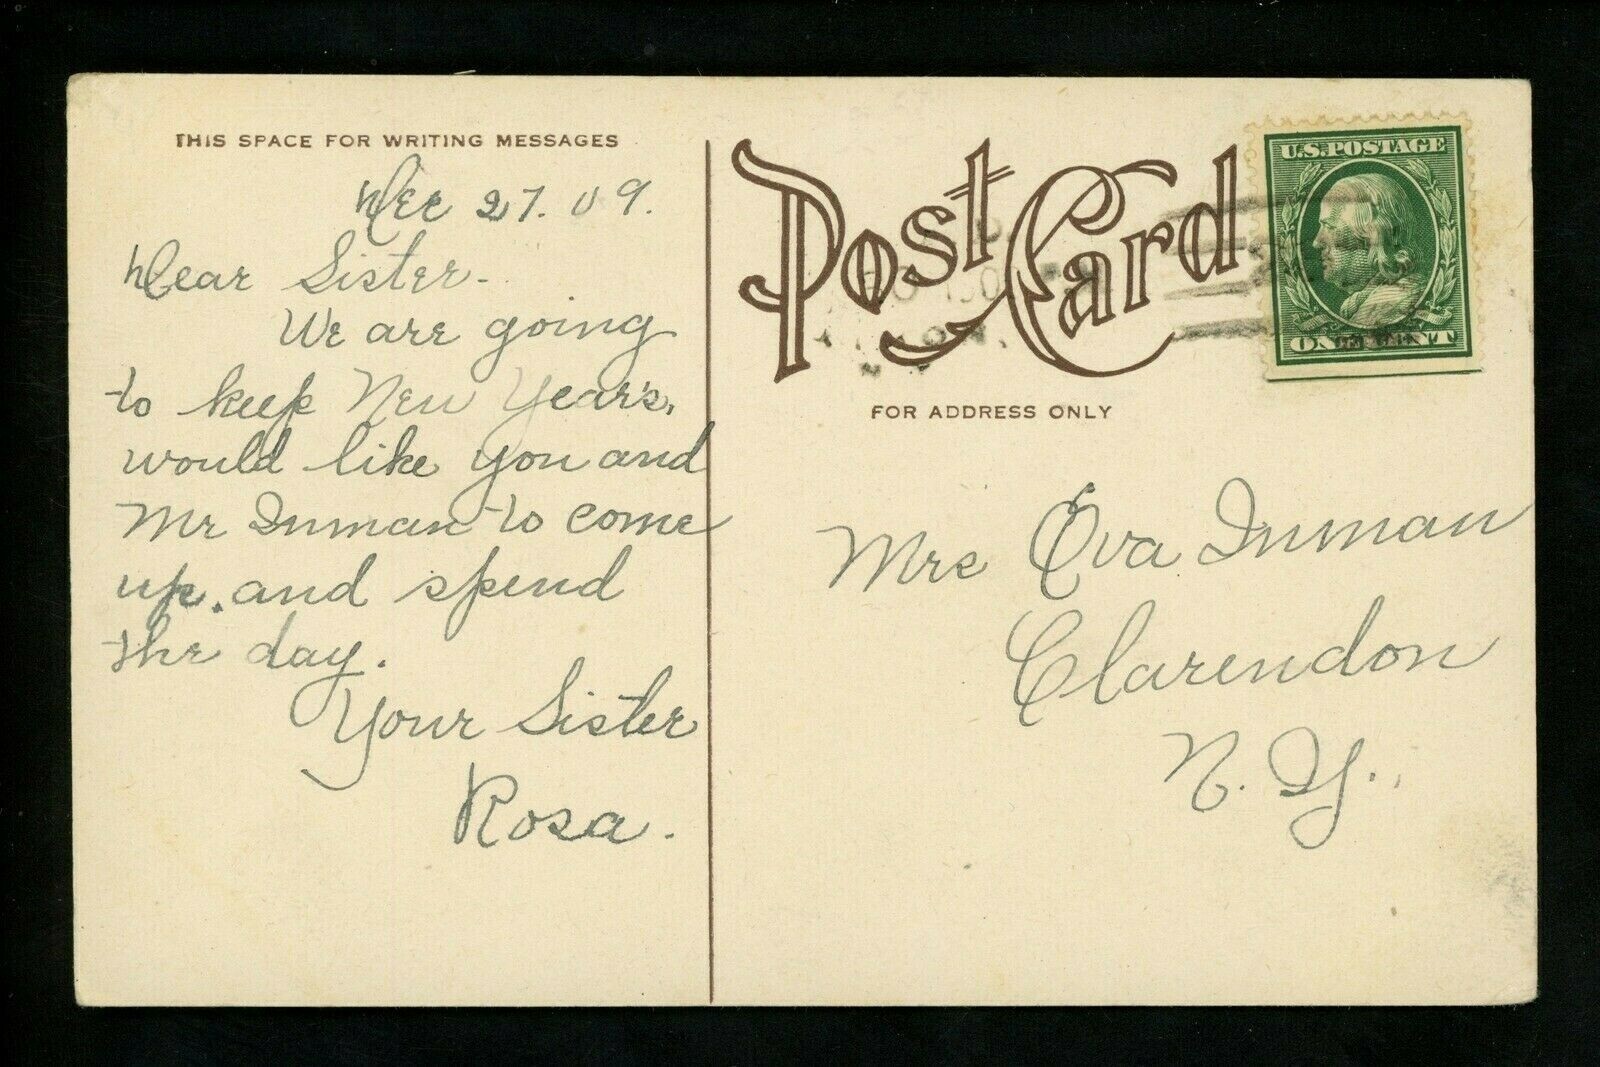 THIS SPACE FOR WRITING MESSAGES
Dec 27. 09.
Dear Sister-
We are going
to keep New Year's.
would like you and
Mr Inman to come
up. and spend
the day.
Your Sister
Rosa.
Post Card
FOR ADDRESS ONLY
U.S. POSTAGE
ONE CENT
Mrs Eva Inman
Clarendon
N. Y.